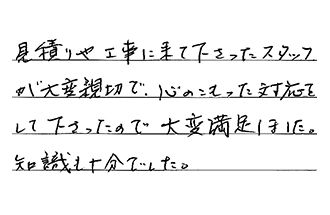 見積りや工事に来て下さったスタッフ
が大変親切で、心のこもった対応を
して下さったので大変満足しました。
知識も十分でした。